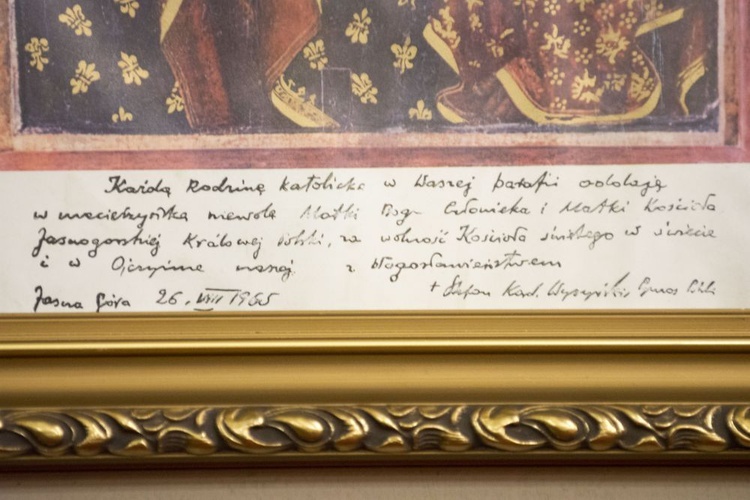 Każdą Rodzinę katolicką w Waszej parafii oddaję
w macierzyńską niewolę Matki Boga Człowieka i Matki Kościoła
Jasnogórskiej Królowej Polski, za wolność Kościoła świętego w świecie
i w Ojczyźnie naszej z błogosławieństwem
Jasna Góra 26. VIII 1965 + Stefan Kard. Wyszyński, Prymas Polski